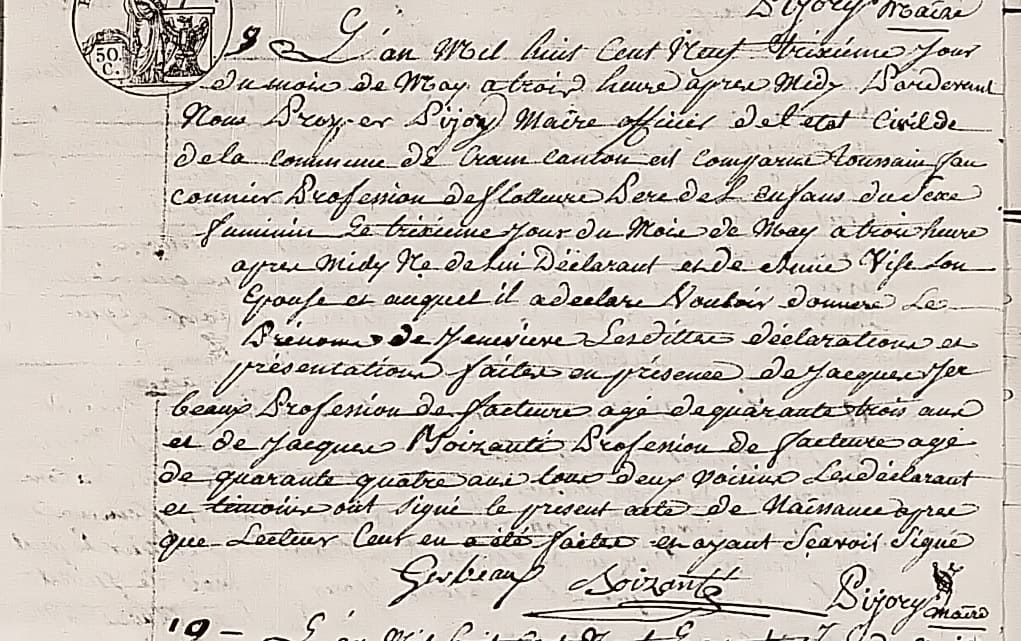 Pijory Maire
50
C.
9 L'an Mil huit Cent Neuf trixième Jour
du mois de May a trois heure après Midy Pardevant
Nous Pijory Maire officié de l etat Civil de
de la commune de Crain canton est comparue toussain Jau
connier Profession de flotteure Pere de l Enfans du Sexe
feminin Le trixième Jour du Mois de May a trois heure
apres Midy Né de lui Déclarant et de Son
Epouse et auquel il a declaré Vouloir donnere Le
Prénome de Jenevieve Lesditte déclarations et
présentations faites en présence de Jacques Jer
beaux Profession de facteure agé de quarante trois ans
et de Jacques Soizanté Profession de facteure agé
de quarante quatre ans tous deux Voisins Les déclarant
et témoins ont Signé le présent acte de Naissance apres
que Lecteur Leur en a été faites et ayant Sçavoir Signé
Gerbeaux Soizanté Pijory maire
10 - L'an Mil huit Cent Neuf